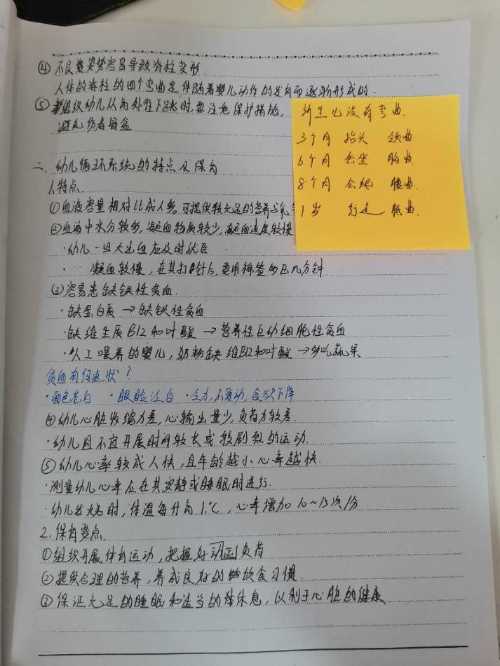 ④ 不良坐姿势容易导致脊柱变形
人体的脊柱的四个弯曲是伴随着婴儿动作的发育而逐渐形成的.
⑤ 组织幼儿从高处往下跳时,要注意保护措施,
避免伤着骨盆
新生儿没有弯曲.
3个月 抬头 颈曲
6个月 会坐 胸曲
8个月 会爬 腰曲
1岁 行走 骶曲
二、幼儿循环系统的特点及保育
1.特点
①血液容量相对比成人多,可提供较充足的营养与氧
②血液中水分较多,凝血物质较少,凝血速度较慢
·幼儿一旦大出血应及时就医
凝血较慢,在其打针后,要用棉签多压几分钟
③容易患缺铁性贫血
·缺蛋白质 → 缺铁性贫血
·缺维生素B12和叶酸 → 营养性巨幼细胞性贫血
·人工喂养的婴儿,奶粉缺维B12和叶酸 → 多吃蔬果
贫血有何症状?
·面色苍白 ·眼睑泛白 ·乏力,不爱动,食欲下降
④幼儿心脏收缩力差,心输出量少,负荷力较差.
·幼儿且不宜开展时间较长或较剧烈的运动.
⑤幼儿心率较成人快,且年龄越小心率越快.
·测量幼儿心率应在其安静或睡眠时进行.
·幼儿发热时,体温每升高1℃,心率增加10~15次/分
2.保育要点.
①组织开展体育运动,把握好运动负荷
②提供合理的营养,养成良好的饮食习惯.
③保证充足的睡眠和适当的休息,以利于心脏的健康